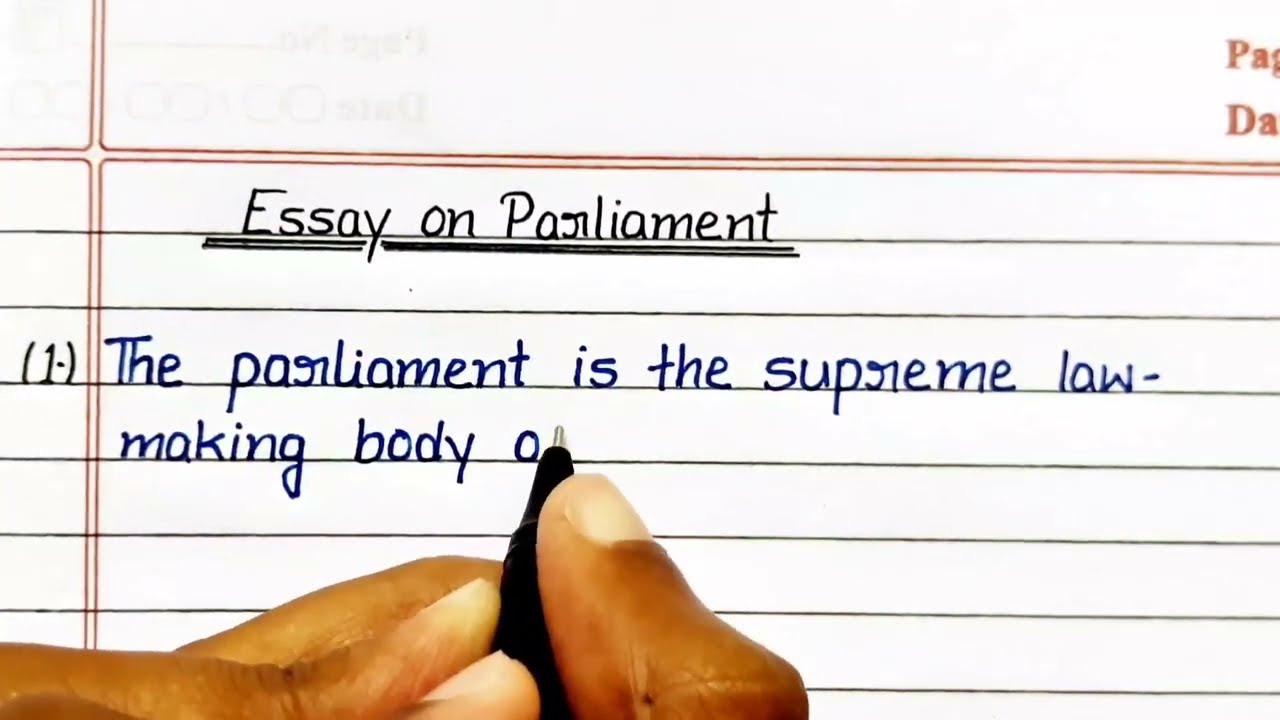 Pag
Da
Essay on Parliament
(1.) The parliament is the supreme law-
making body o